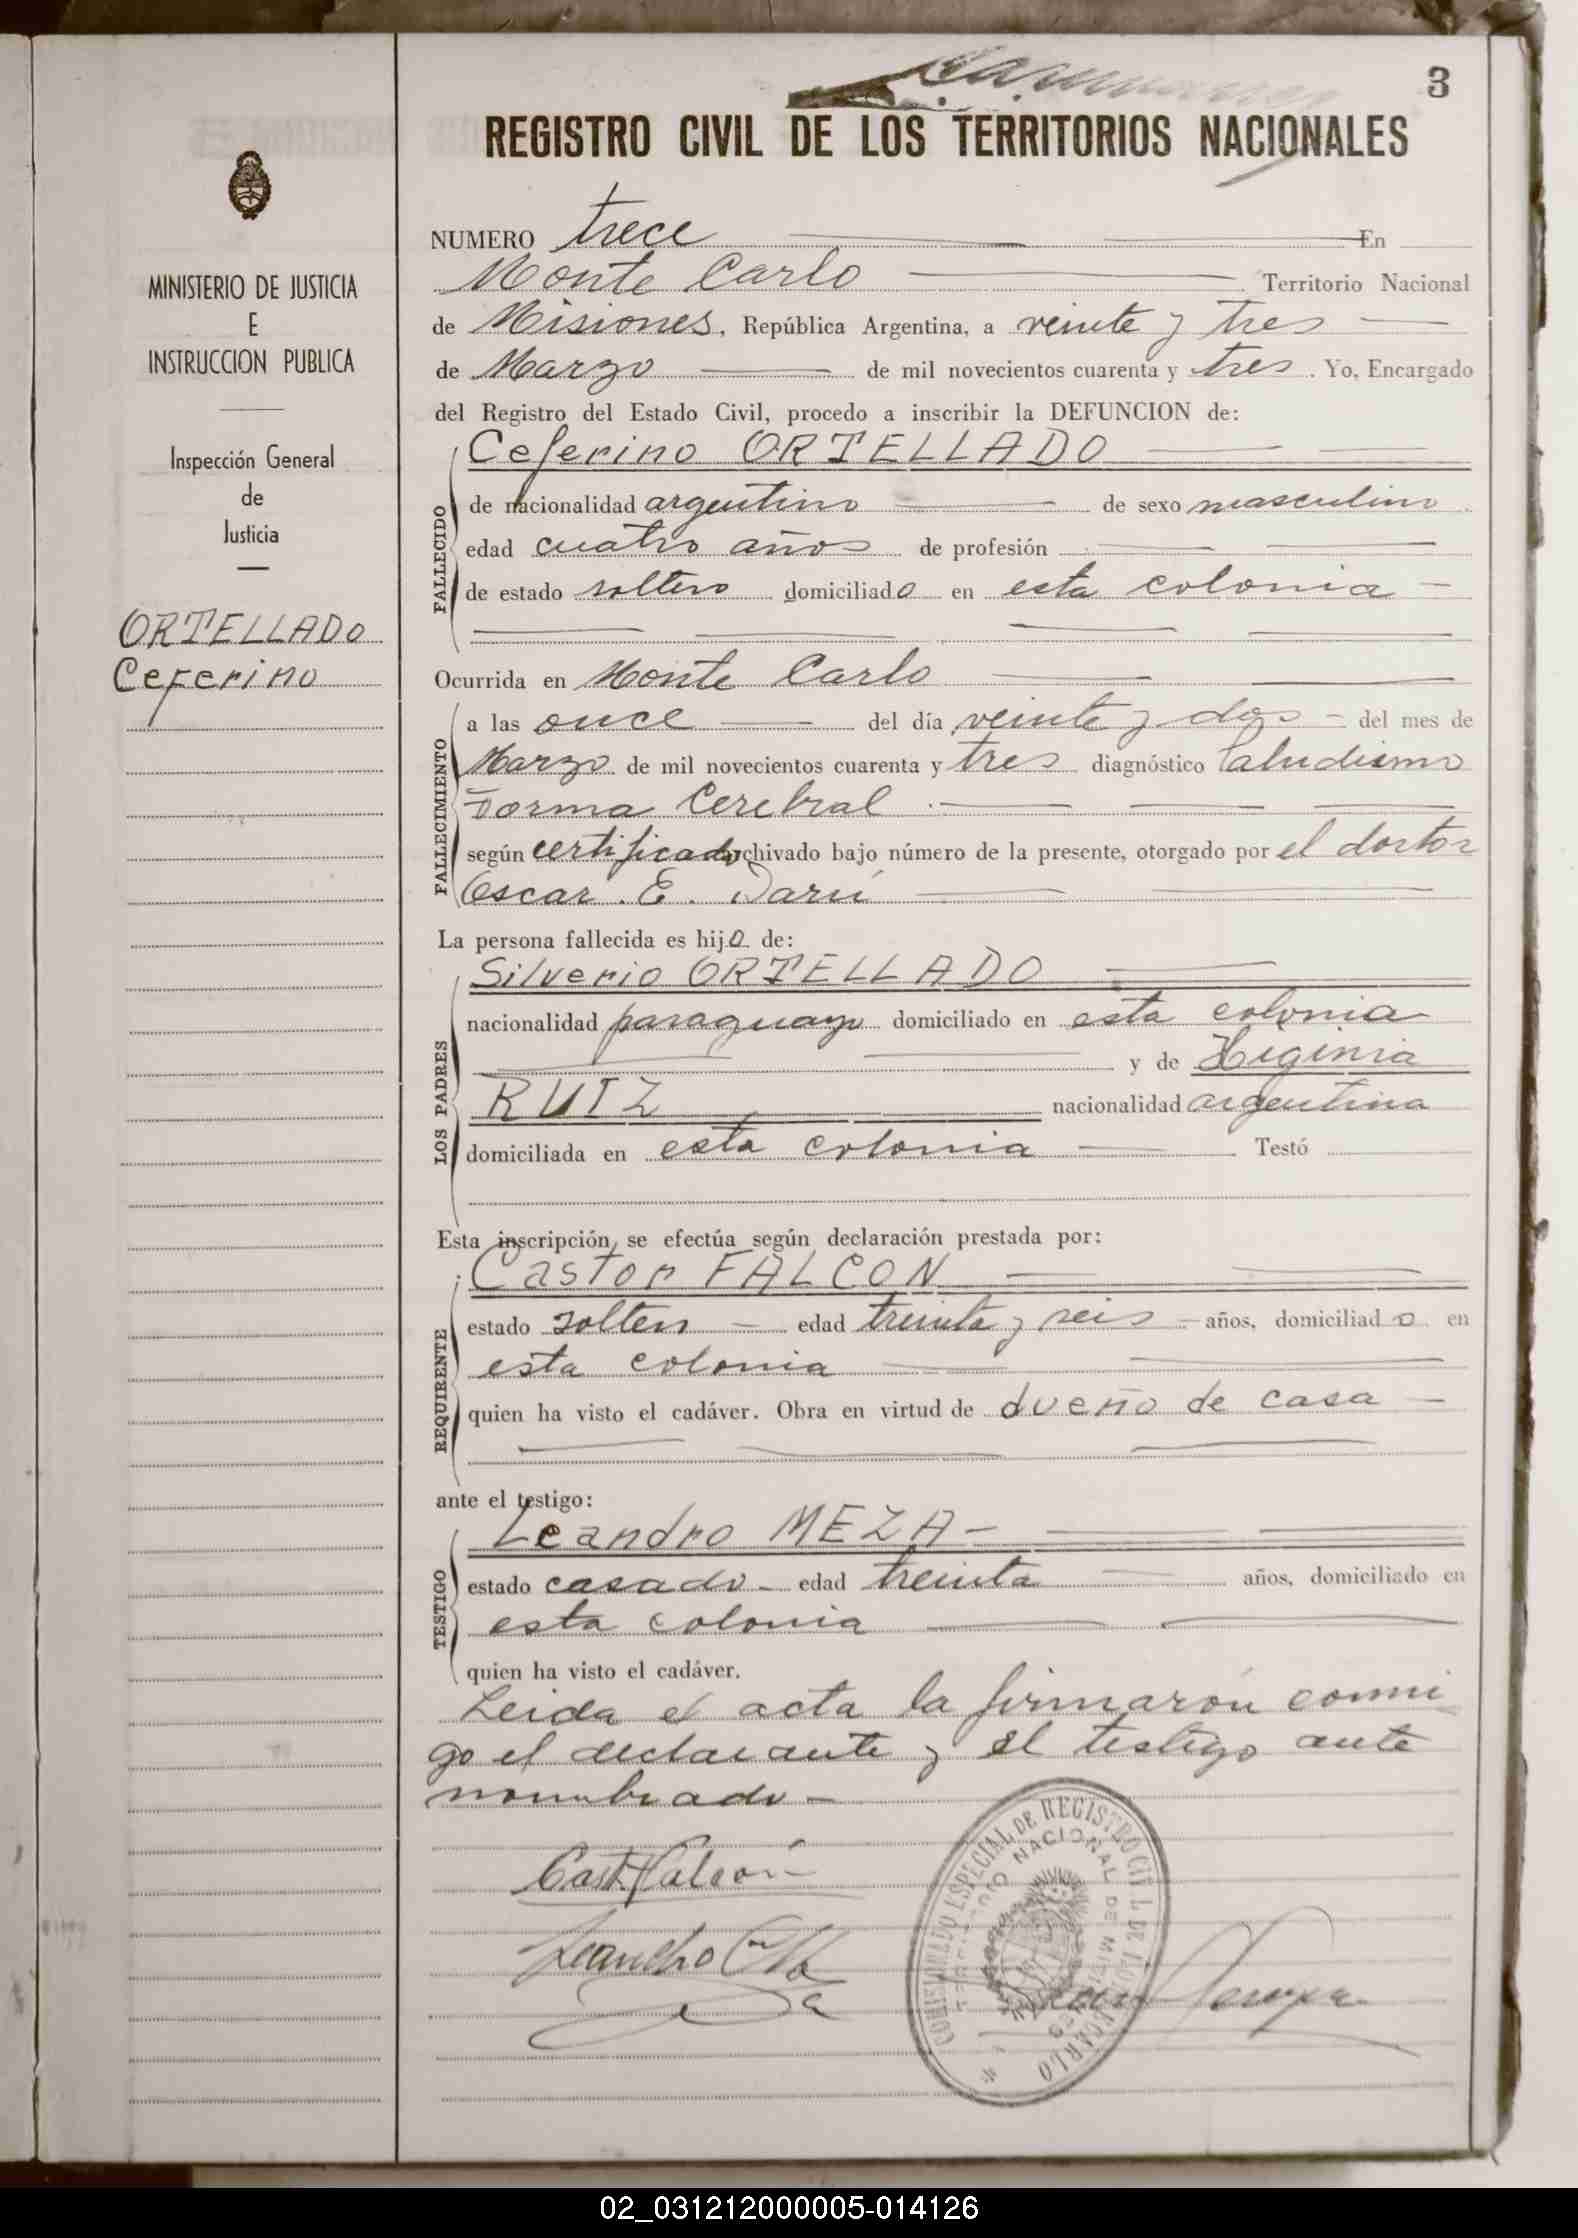 3
REGISTRO CIVIL DE LOS TERRITORIOS NACIONALES
MINISTERIO DE JUSTICIA
E
INSTRUCCION PUBLICA
Inspección General
de
Justicia
ORTELLADO
Ceferino
NUMERO trece En
Monte Carlo Territorio Nacional
de Misiones, República Argentina, a veinte y tres
de Marzo de mil novecientos cuarenta y tres. Yo, Encargado
del Registro del Estado Civil, procedo a inscribir la DEFUNCION de:
FALLECIDO
Ceferino ORTELLADO
de nacionalidad argentino de sexo masculino
edad cuatro años de profesión
de estado soltero domiciliado en esta colonia
Ocurrida en Monte Carlo
FALLECIMIENTO
a las once del día veinte y dos del mes de
Marzo de mil novecientos cuarenta y tres diagnóstico Paludismo
Forma Cerebral
según certificado archivado bajo número de la presente, otorgado por el doctor
Oscar E. Darú
La persona fallecida es hijo de:
LOS PADRES
Silverio ORTELLADO
nacionalidad paraguayo domiciliado en esta colonia
y de Higinia
RUIZ nacionalidad argentina
domiciliada en esta colonia Testó
Esta inscripción se efectúa según declaración prestada por:
REQUIRENTE
Castor FALCON
estado soltero edad treinta y seis años, domiciliado en
esta colonia
quien ha visto el cadáver. Obra en virtud de dueño de casa
ante el testigo:
TESTIGO
Leandro MEZA
estado casado edad treinta años, domiciliado en
esta colonia
quien ha visto el cadáver.
Leida el acta la firmarón conmi
go el declarante y el testigo ante
nombrado
Cast. Falcón
Leandro
COMISARIADO ESPECIAL DE REGISTRO CIVIL DE MONTECARLO
TERRITORIO NACIONAL DE MISIONES
02_031212000005-014126